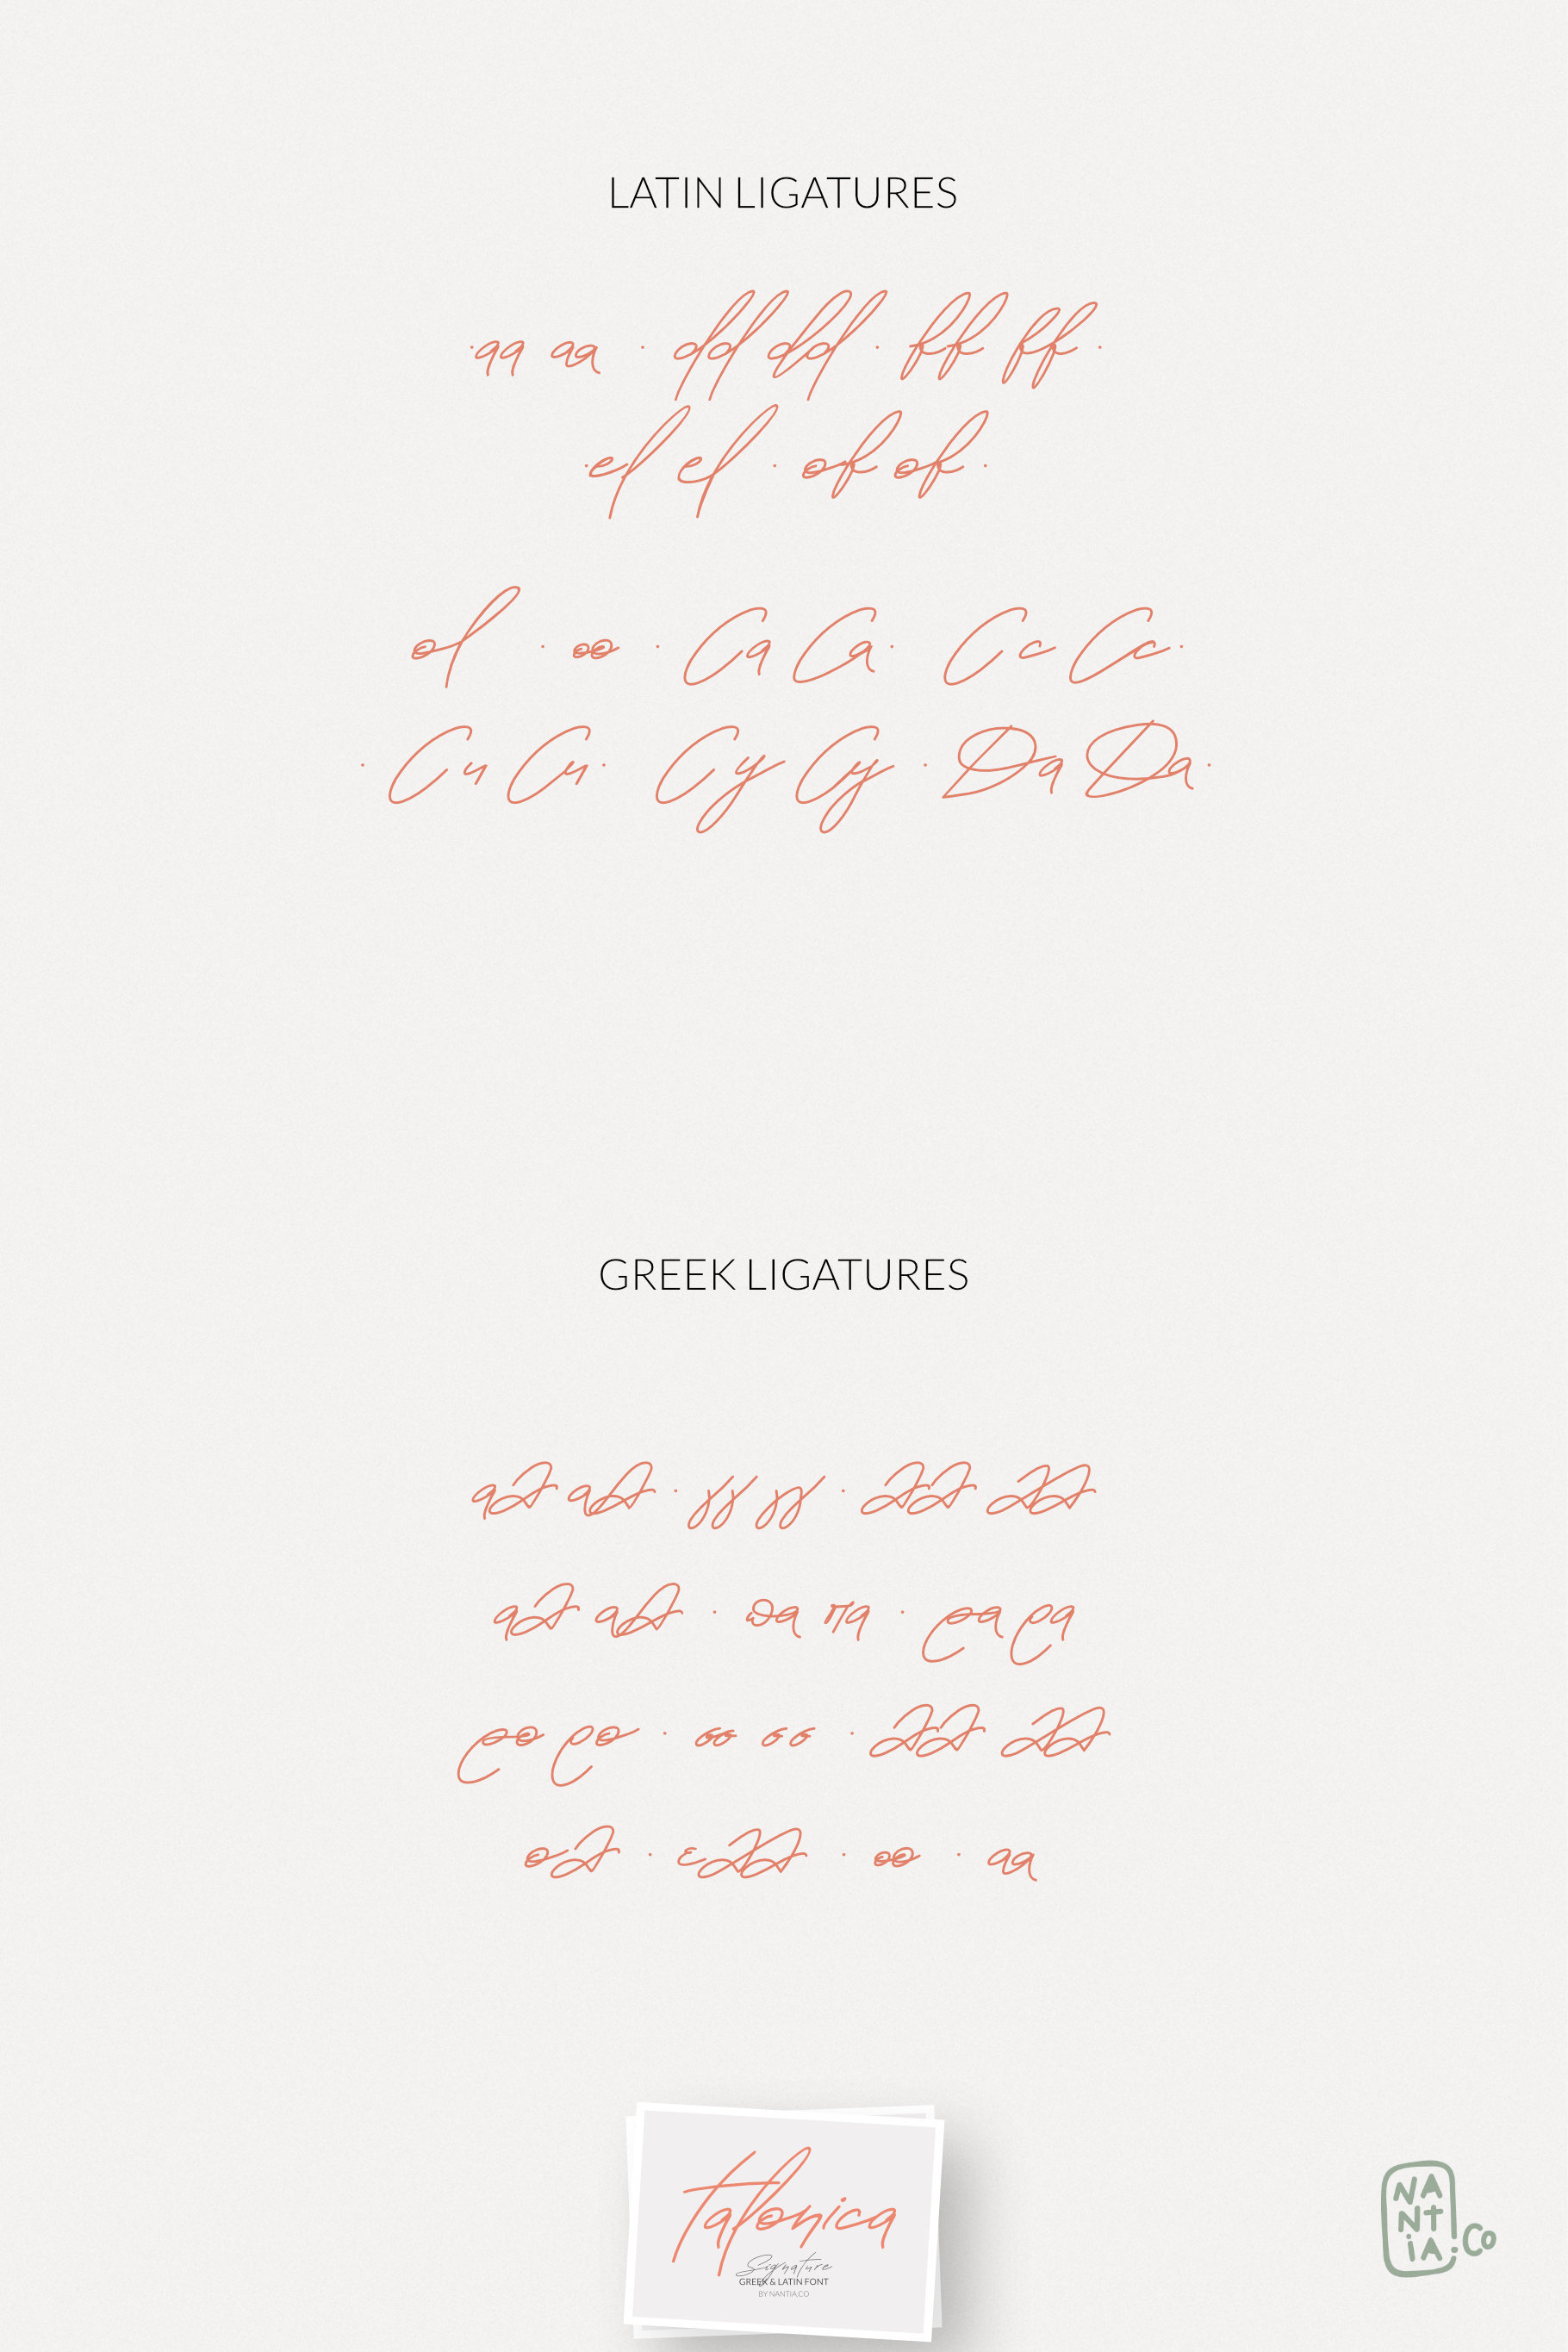 LATIN LIGATURES
·aa aa · dd dd · ff ff ·
·el el · of of ·
ol · oo · Ca Ca · Cc Cc ·
· Cu Cu · Cy Cy · Da Da ·
GREEK LIGATURES
αλ αλ · γγ γγ · λλ λλ
αλ αλ · πα πα · ρα ρα
ρο ρο · σσ σσ · λλ λλ
ολ · ελλ · οο · αα
Talonica
Signature
GREEK & LATIN FONT
BY NANTIA.CO
NANTIA.Co